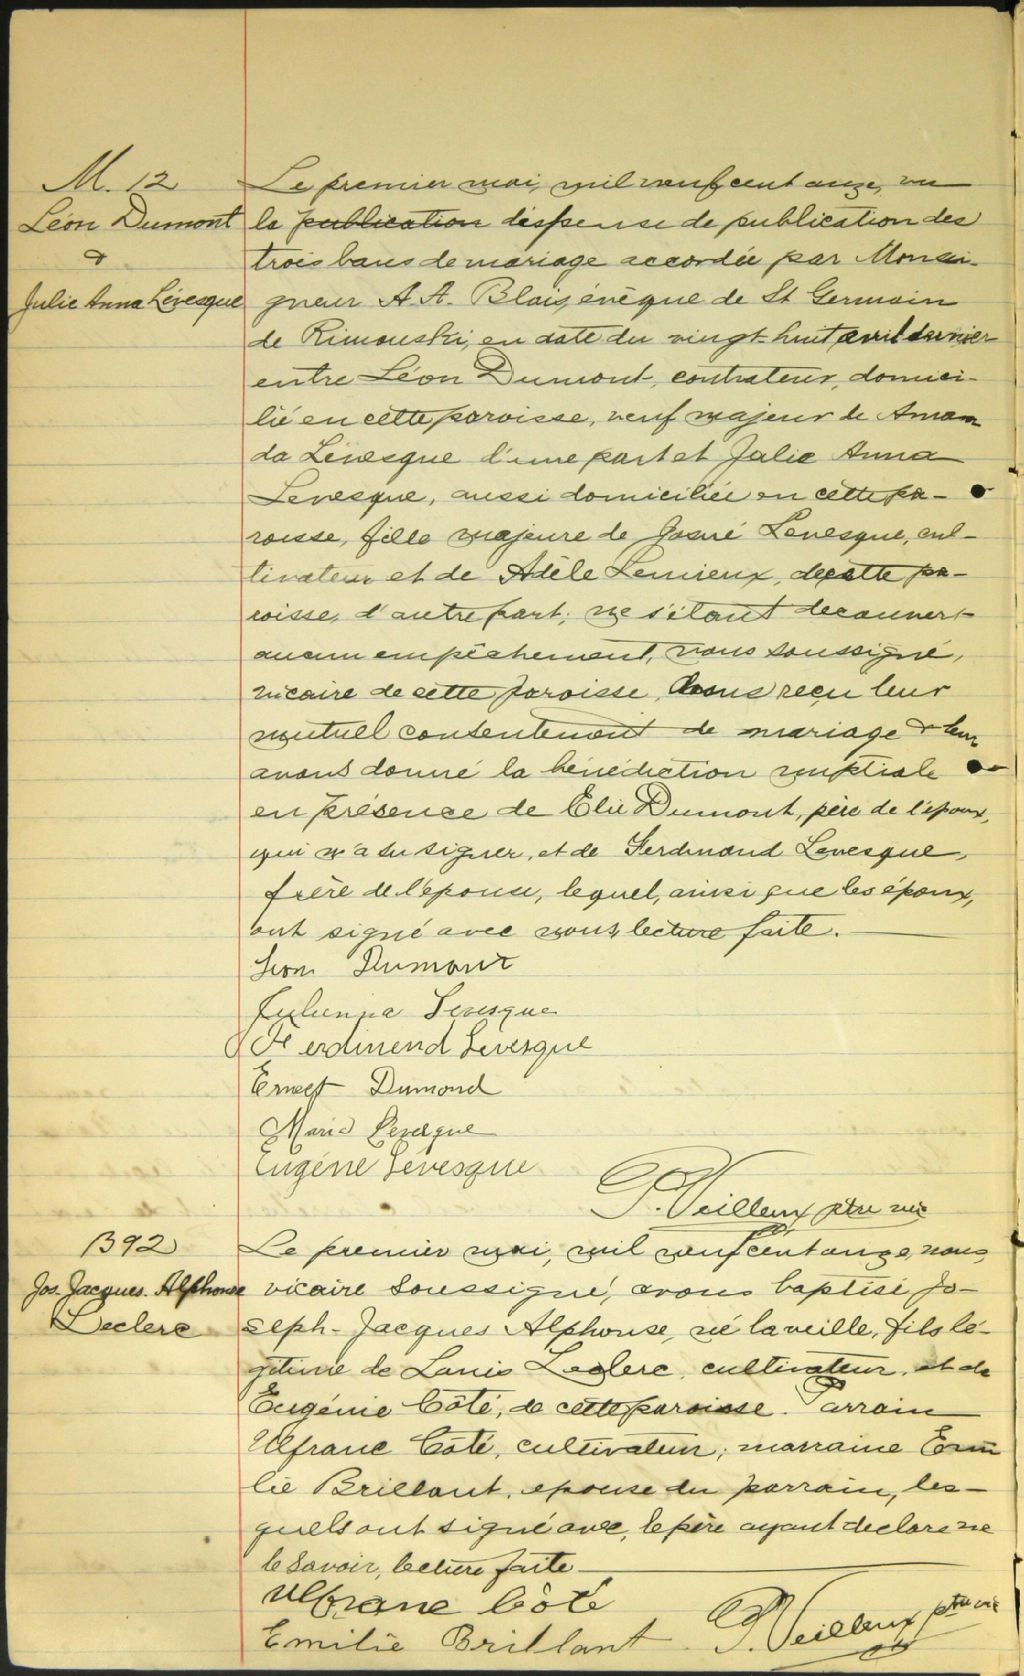 M. 12
Léon Dumont
&
Julie Anna Lévesque
Le premier mai, mil neuf cent onze, vu
la publication dispense de publication des
trois bans de mariage accordée par Monsei-
gneur A. A. Blais, évêque de St Germain
de Rimouski, en date du vingt-huit avril dernier
entre Léon Dumont, cultivateur, domici-
lié en cette paroisse, veuf majeur de Aman
da Lévesque d'une part et Julie Anna
Levesque, aussi domiciliée en cette pa-
roisse, fille majeure de Josué Levesque, cul-
tivateur et de Adèle Lemieux, de cette pa-
roisse, d'autre part; ne s'étant decouvert
aucun empêchement, nous soussigné,
vicaire de cette paroisse, avons reçu leur
mutuel consentement de mariage & leur
avons donné la bénédiction nuptiale
en présence de Elie Dumont, père de l'époux,
qui n'a su signer, et de Ferdinand Levesque,
frère de l'épouse, lequel, ainsi que les époux,
ont signé avec nous, lecture faite.
Leon Dumont
Julienna Levesque
Ferdinend Lévesque
Ernest Dumond
Maria Levesque
Eugéne Lévesque
P. Veilleux ptre vic
B92
Jos. Jacques. Alphonse
Leclerc
Le premier mai, mil neuf cent onze, nous,
vicaire soussigné, avons baptisé Jo-
seph-Jacques Alphonse, né la veille, fils lé-
gitime de Louis Leclerc, cultivateur, et de
Eugénie Côté, de cette paroisse. Parrain
Ulfranc Côté, cultivateur; marraine Emi
lie Brillant, epouse du parrain, les-
quels ont signé avec, le père ayant declare ne
le savoir, lecture faite
Ulfranc Côté
Emilie Brillant
P. Veilleux ptre vic